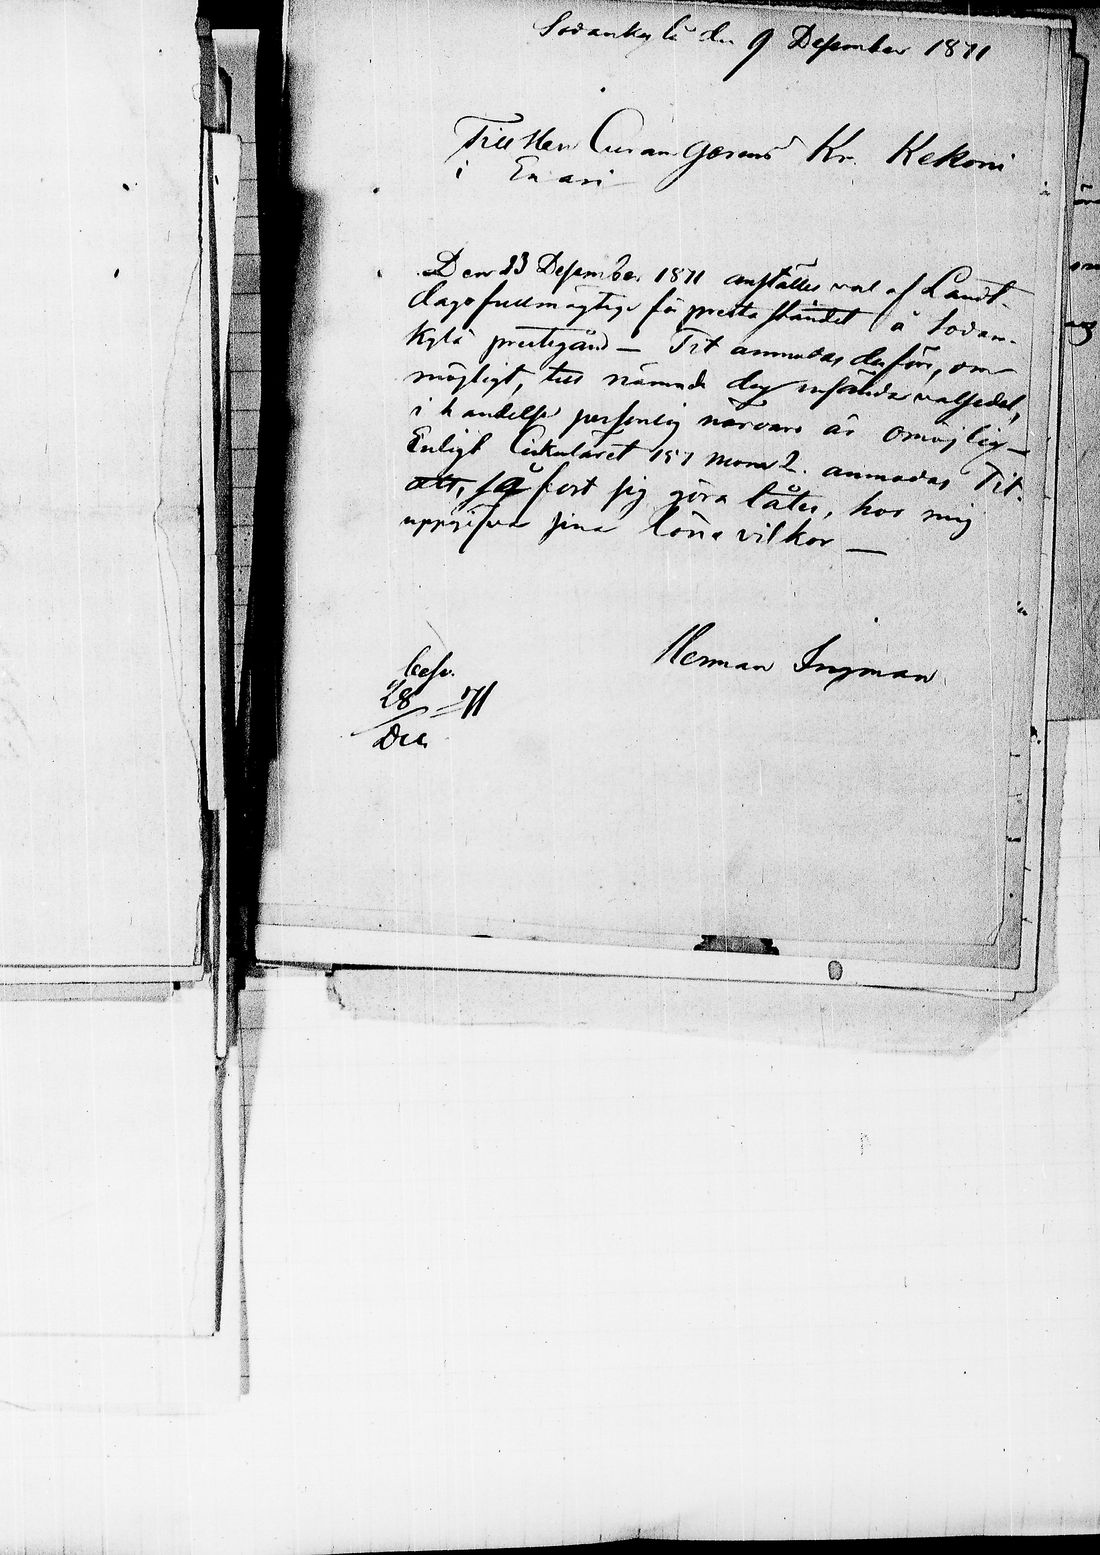 Sodankylä den 9 Desember 1871
Till Herr Curam gerens Kr. Kekoni
i Enari
Den 23 Desember 1871 anställes val af Landt-
dagsfullmägtige för prestaståndet å Sodan-
kylä prestegård — Tit anmodas derföre, om
möjligt, till nämnde dag insända valsedel,
i händelse personlig närvaro är omöjlig —
Enligt Cirkuläret 157 mom 2. anmodas Tit.
att, så fort sig göra låter, hos mig
uppgifva sina löne vilkor —
Herman Ingman
besv.
28/Dec =71